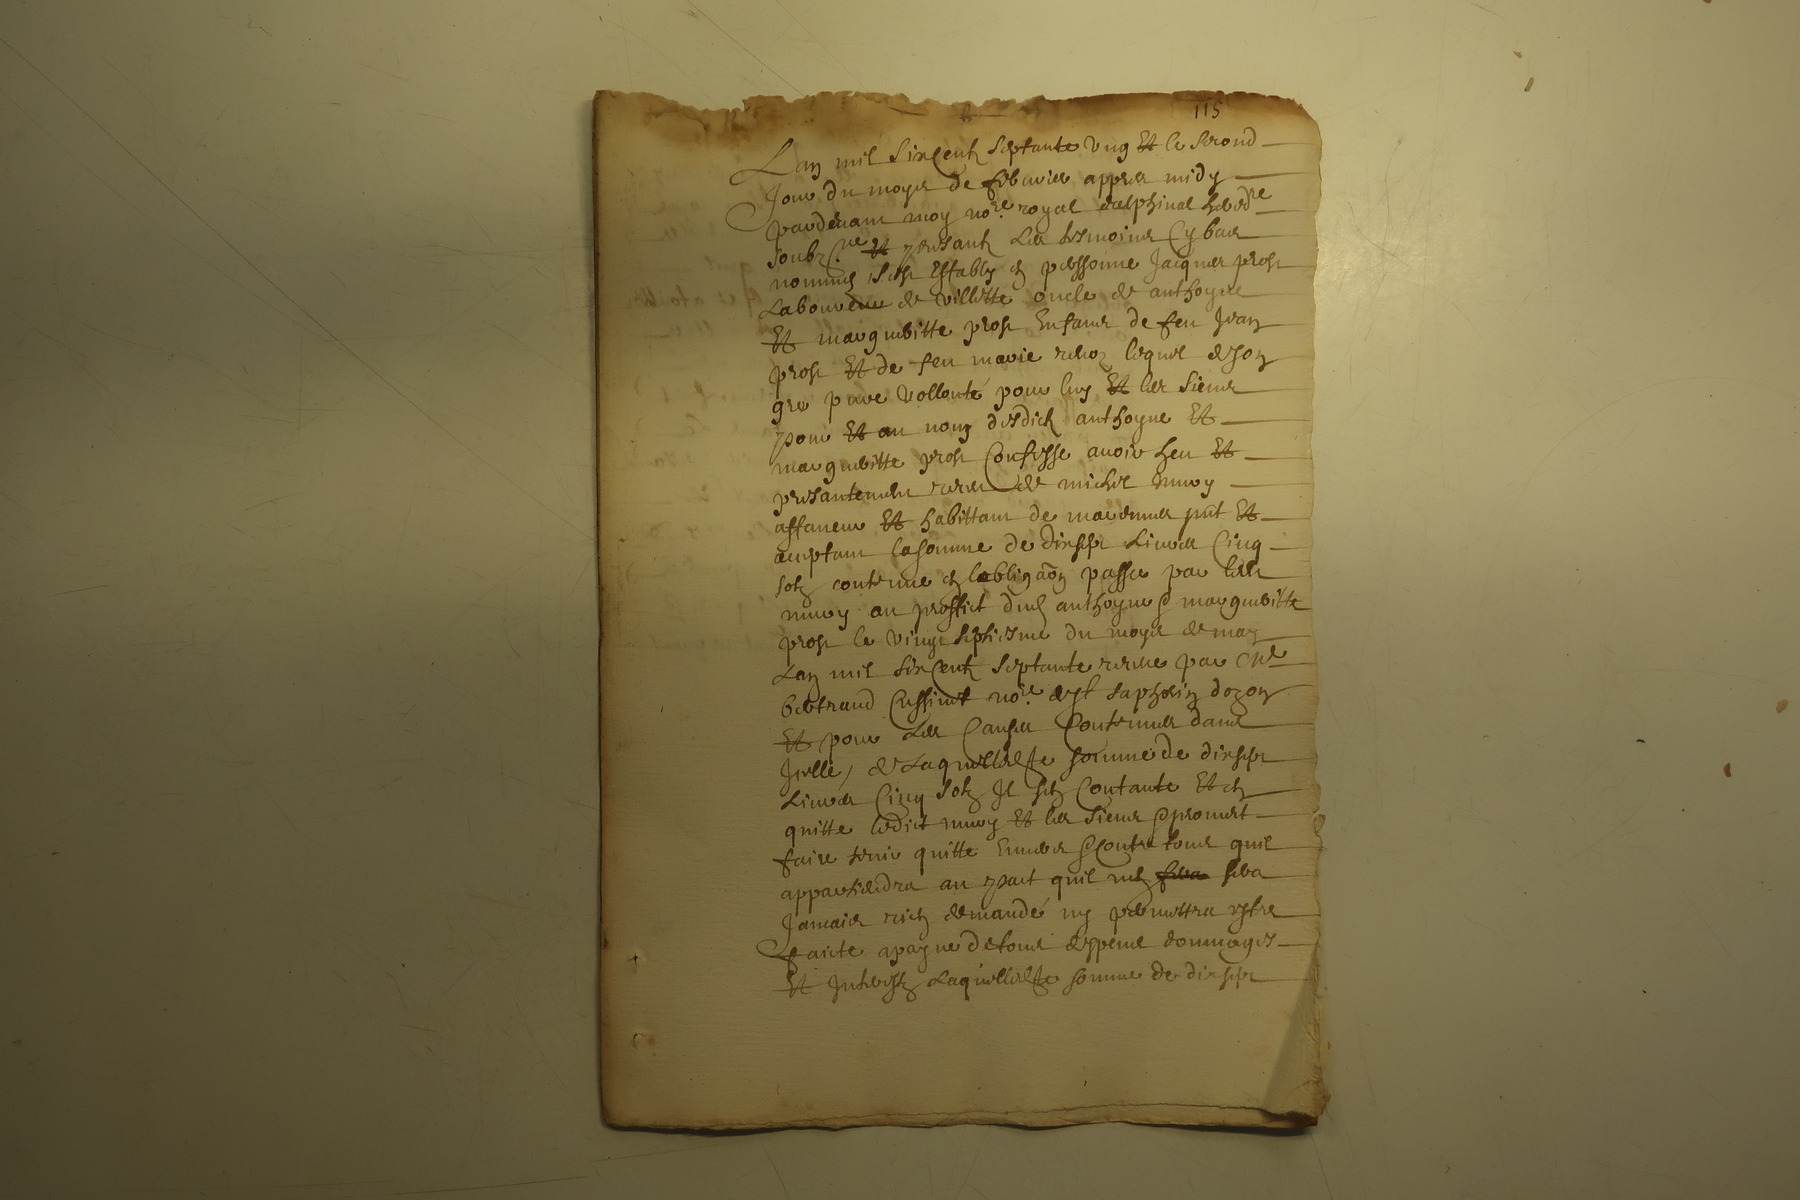 115
Lan mil sixcentz septante ung Et le second
Jour du moys de febvrier appres midy
pardevant moy no.re royal dalphinal hered.re
soubz.ne Et presantz les tesmoins cy bas
nommes sest estably en personne Jacques prost
Laboureur de villette oncle de anthoyne
Et margueritte prost Enfans de feu Jean
prost Et de feu marie lequel de son
gre pure vollonté pour luy Et les siens
pour Et au nom desdictz anthoyne Et
margueritte prost Confesse avoir heu Et
presantement receu de michel muoy
affaneur Et habittant de marennes pnt Et
acceptant la somme de dixsept Livres Cinq
solz contenue en lobligaon passee par led
muoy au proffict dud anthoyne & margueritte
prost le vingt septiesme du moys de may
Lan mil sixcentz septante receue par
bertrand no.re de st saphorin dozon
Et pour Les Causes Contenues dans
Jcelle, de Laquelle somme de dixsept
Livres Cinq solz Jl sen Contante Et en
quitte ledict muoy Et les siens & promet
faire tenir quitte Envers & Contre tous quil
appartiendra au pact quil nen sera sera
Jamais rien demandé ny permettra estre
faicte a payne de tous despens dommages
Et Jnterestz Laquelle somme de dixsept